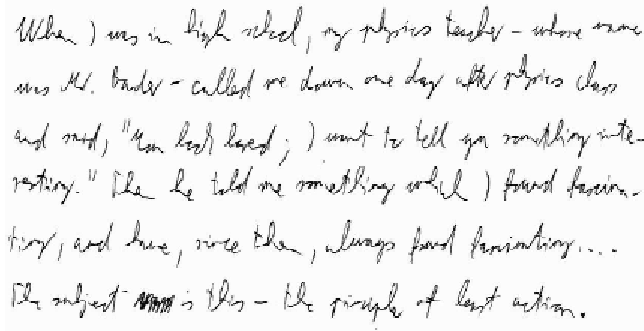 When I was in high school, my physics teacher – whose name
was Mr. Bader – called me down one day after physics class
and said, "You look bored; I want to tell you something inte-
resting." Then he told me something which I found fascina-
ting, and have, since then, always found fascinating....
The subject is this – the principle of least action.